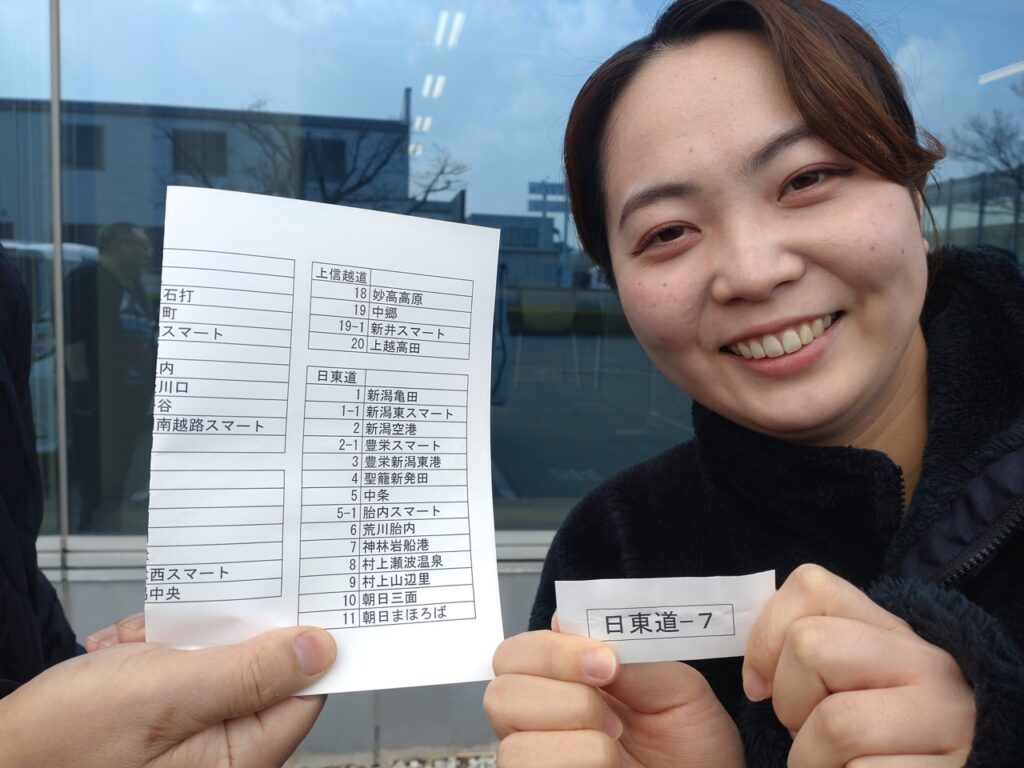 石打
町
スマート
内
川口
谷
南越路スマート
西スマート
中央
上信越道
18 妙高高原
19 中郷
19-1 新井スマート
20 上越高田
日東道
1 新潟亀田
1-1 新潟東スマート
2 新潟空港
2-1 豊栄スマート
3 豊栄新潟東港
4 聖籠新発田
5 中条
5-1 胎内スマート
6 荒川胎内
7 神林岩船港
8 村上瀬波温泉
9 村上山辺里
10 朝日三面
11 朝日まほろば
日東道-7